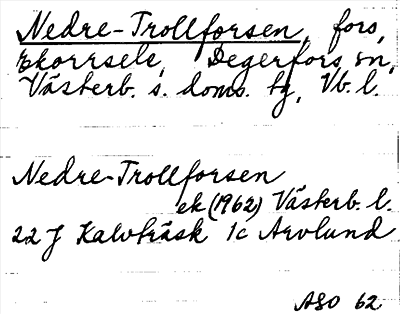 Nedre-Trollforsen, fors,
Ekorrsele, Degerfors sn,
Västerb. s. doms. tg, Vb. l.
Nedre-Trollforsen
ek (1962) Västerb. l.
22 J Kalvträsk 1c Arvlund
ASO 62